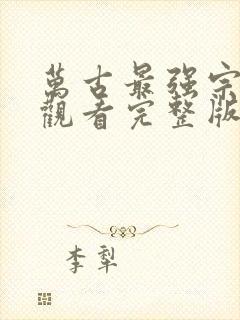 萬古最强宗
觀看完整版
李犁